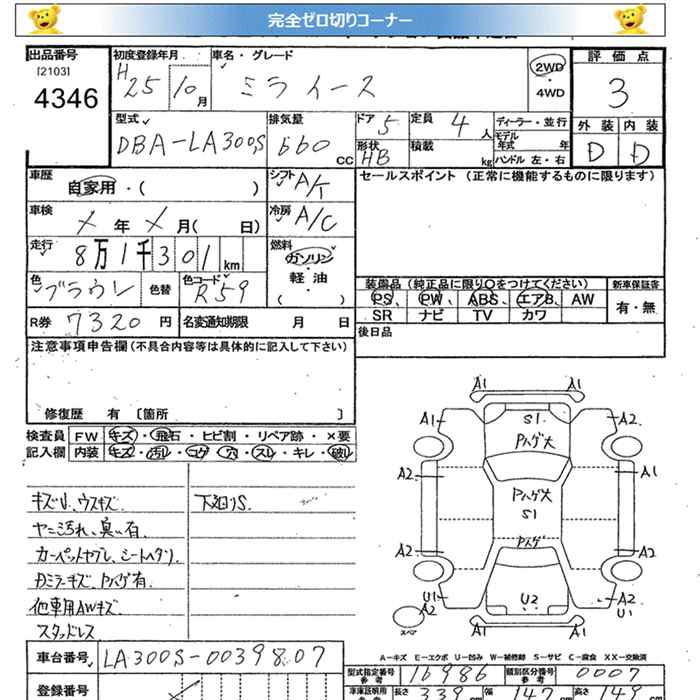 完全ゼロ切りコーナー
出品番号 初度登録年月 車名・グレード 評価点
[2103] H 25 10月 ミライース 2WD・4WD 3
4346
型式 排気量 ドア 5 定員 4人 ディーラー・並行 外装 内装
DBA-LA300S 660cc 形状 HB 積載 kg モデル年式 年 ハンドル 左・右 D D
車歴 シフト A/T セールスポイント (正常に機能するものに限ります)
自家用・( )
車検 冷房 A/C
メ年メ月( 日)
走行 燃料
8万1千301km ガソリン・軽油
( )
色 色替 色コード 装備品 (純正品に限り○をつけてください) 新車保証書
ブラウン R59 PS、PW、ABS、エアB、AW 有・無
SR ナビ TV カワ
R券 7320円 名変通知期限 月 日 後日品
注意事項申告欄 (不具合内容等は具体的に記入して下さい)
修復歴 有 〔箇所 〕
検査員 FW キズ・飛石・ヒビ割・リペア跡・×要
記入欄 内装 キズ・汚レ・コゲ・穴・スレ・キレ・破レ
キズU、ウスキズ 下廻りS.
ヤニ汚れ、臭い有.
カーペットヤブレ、シートヘタリ.
Rミラーキズ、Pハゲ有.
他車用AWキズ
スタッドレス
A1 A1
A1 S1 A2
Pハゲ大
A2 A1
Pハゲ大
S1
A2 Pハゲ A2
U1 A2 U2 A2 U1
スペア A1 A1
A-キズ E-エクボ U-凹み W-補修跡 S-サビ C-腐食 XX-交換済
車台番号 LA300S-0039807 型式指定番号 参考 16986 類別区分番号 参考 0007
登録番号 車庫証明用 長さ 339 幅 147 高さ 149